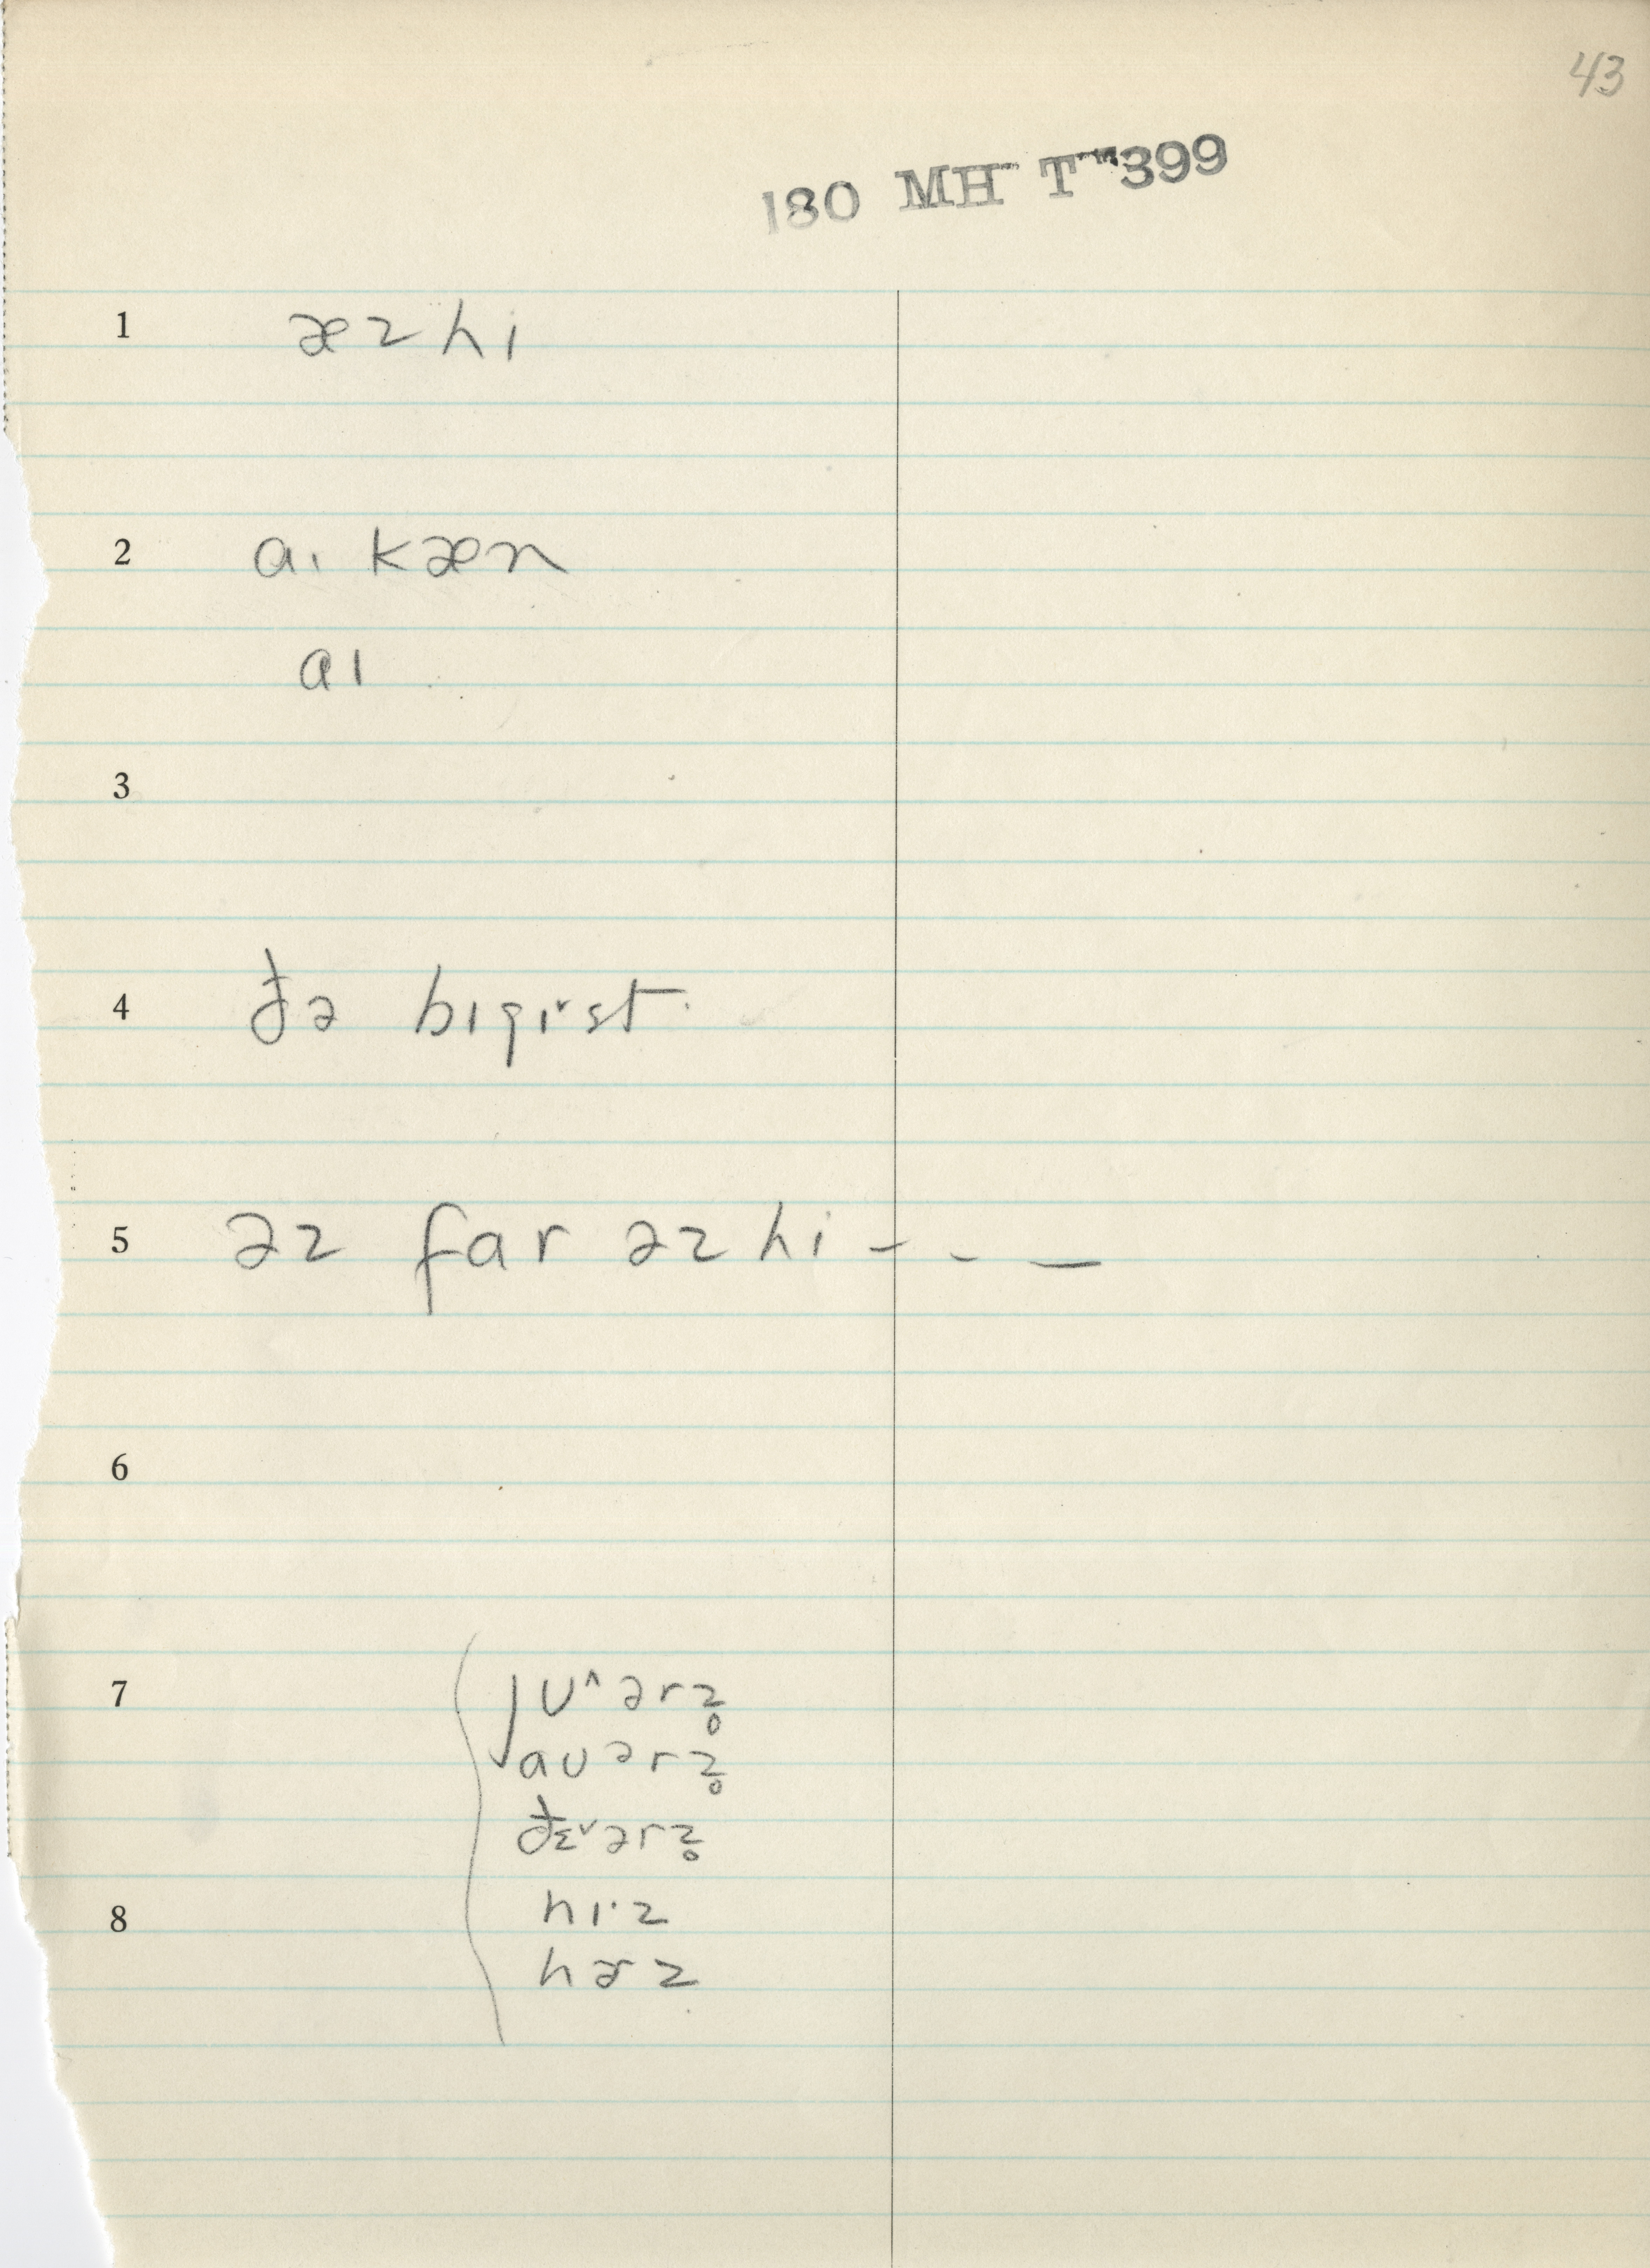 43
180 MH T 399
1 æz hi
2 aɪ kæn
aɪ
3
4 ðə bɪgɪ˅st
5 əz far əz hi - - -
6
7 jʊ^ərz̥
aʊərz̥
ðɛ˅ərz̥
8 hɪ·z
hɚz